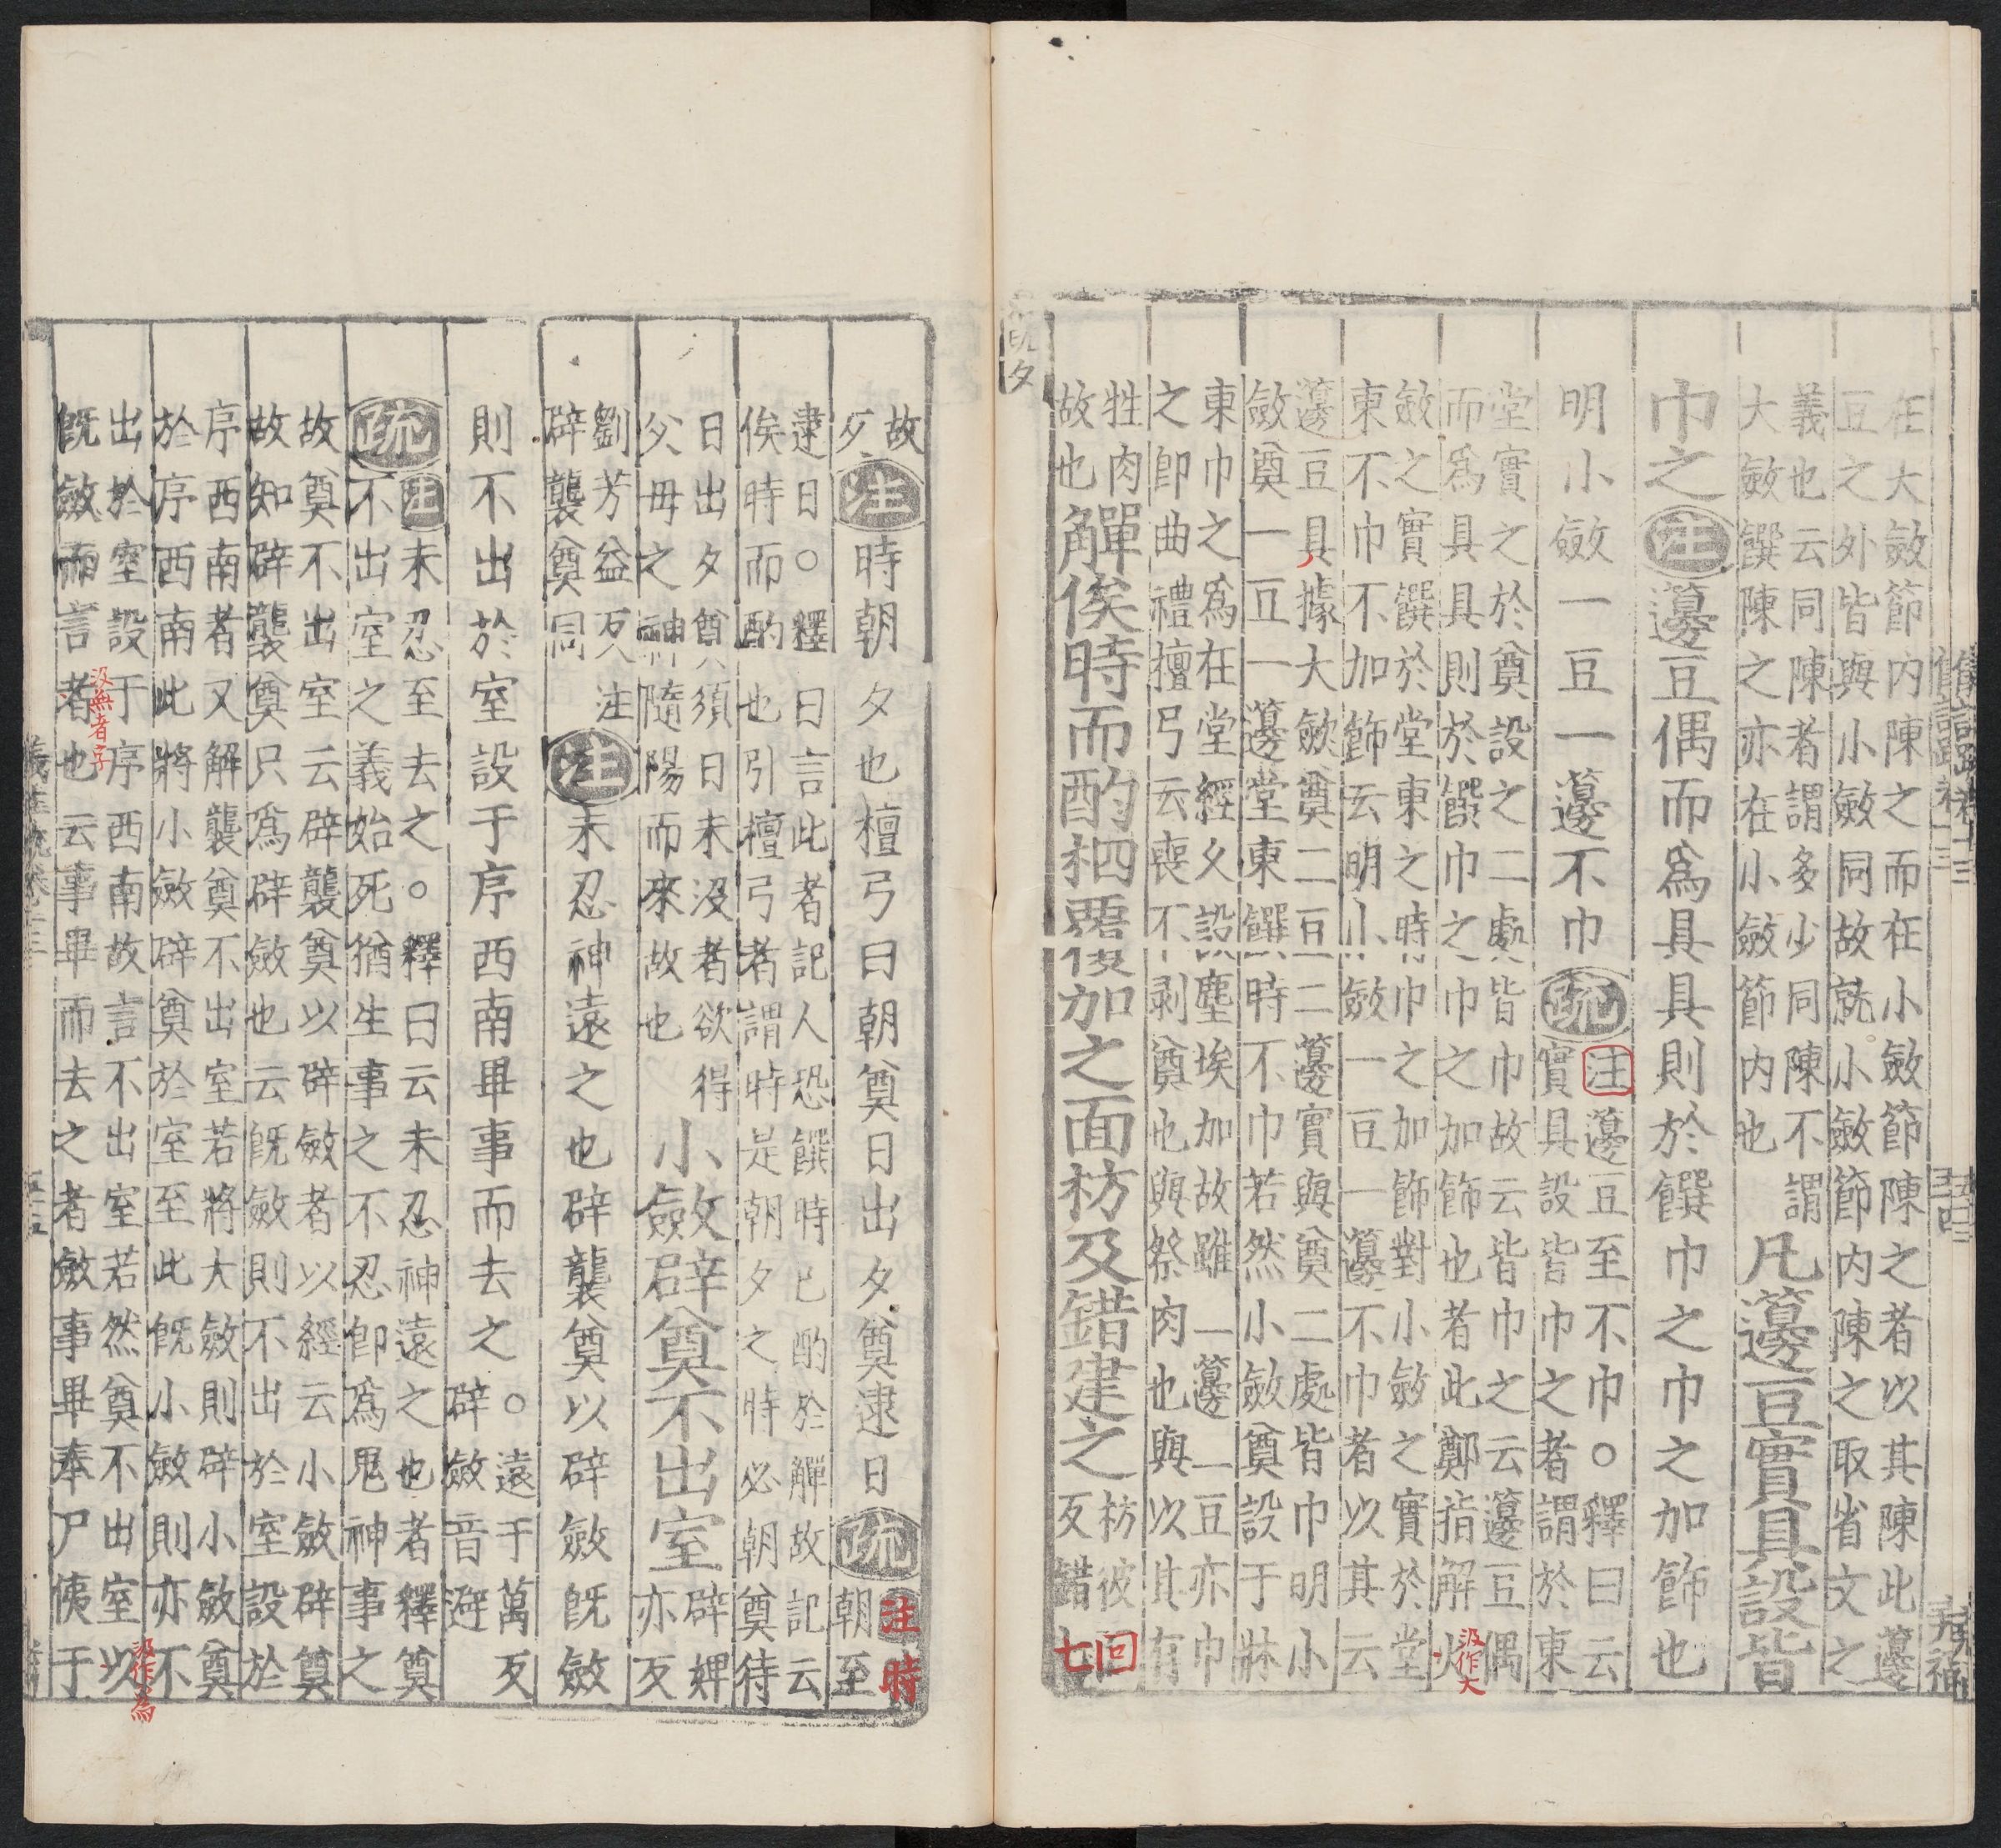 儀禮疏卷十三
在大斂節內陳之而在小斂節陳之者以其陳此籩
豆之外皆與小斂同故就小斂節內陳之取省文之
義也云同陳者謂多少同陳不謂
大斂饌陳之亦在小斂節內也
凡籩豆實具設皆
巾之注籩豆偶而爲具具則於饌巾之巾之加飾也
明小斂一豆一籩不巾疏
注籩豆至不巾○釋曰云
實具設皆巾之者謂於東
堂實之於奠設之二處皆巾故云皆巾之云籩豆偶
而爲具具則於饌巾之巾之加飾也者此鄭指解火
汲作大
斂之實饌於堂東之時巾之加飾對小斂之實於堂
東不巾不加飾云明小斂一豆一籩不巾者以其云
籩豆具據大斂奠二豆二籩實與奠二處皆巾明小
斂奠一豆一籩堂東饌時不巾若然小斂奠設于牀
東巾之爲在堂經久設塵埃加故雖一籩一豆亦巾
之卽曲禮檀弓云喪不剥奠也與祭肉也與以其有
牲肉
故也
觶俟時而酌柶覆加之面枋及錯建之
枋彼回
反錯七
旣夕
故
反注時朝夕也檀弓曰朝奠日出夕奠逮日疏
注時
朝至
逮日○釋曰言此者記人恐饌時已酌於觶故記云
俟時而酌也引檀弓者謂時是朝夕之時必朝奠待
日出夕奠須日未沒者欲得
父母之神隨陽而來故也
小斂辟奠不出室
辟婢
亦反
劉芳益反注
辟襲奠同
注未忍神遠之也辟襲奠以辟斂旣斂
則不出於室設于序西南畢事而去之
○遠于萬反
辟斂音避
疏
注未忍至去之○釋曰云未忍神遠之也者釋奠
不出室之義始死猶生事之不忍卽爲鬼神事之
故奠不出室云辟襲奠以辟斂者以經云小斂辟奠
故知辟襲奠只爲辟斂也云旣斂則不出於室設於
序西南者又解襲奠不出室若將大斂則辟小斂奠
於序西南此將小斂辟奠於室至此旣小斂則亦不
出於室設于序西南故言不出室若然奠不出室以
汲作爲
旣斂而言者也云事畢而去之者斂事畢奉尸侇于
汲無者字